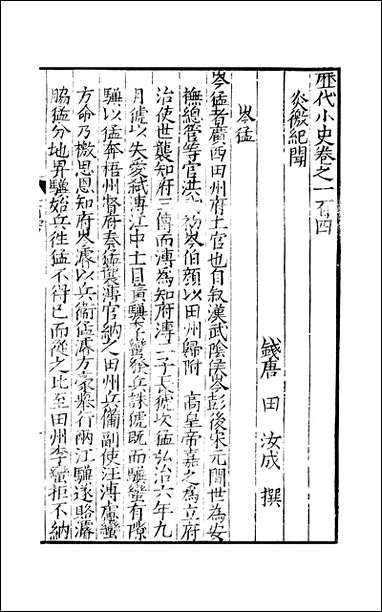 歷代小史卷之一百四
炎徼紀聞
錢唐田汝成撰
岑猛
岑猛者廣西田州府土官也自叙漢武陰侯岑彭後宋元間世為安
撫總管等官洪武初岑伯顔以田州歸附高皇帝嘉之為立府
治使世襲知府三傳而溥為知府溥二子長猇次猛弘治六年九
月猇以失愛弑溥江中土目黃驥李蠻發兵誅猇既而驥蠻有隙
驥以猛奔梧州督府奏猛襲溥官納之田州兵備副使汪溥慮蠻
方命乃檄思恩知府岑濬以兵衛猛濬方豪雄行兩江驥遂賂濬
脇猛分地畀驥始兵徃猛不得已而從之比至田州李蠻拒不納